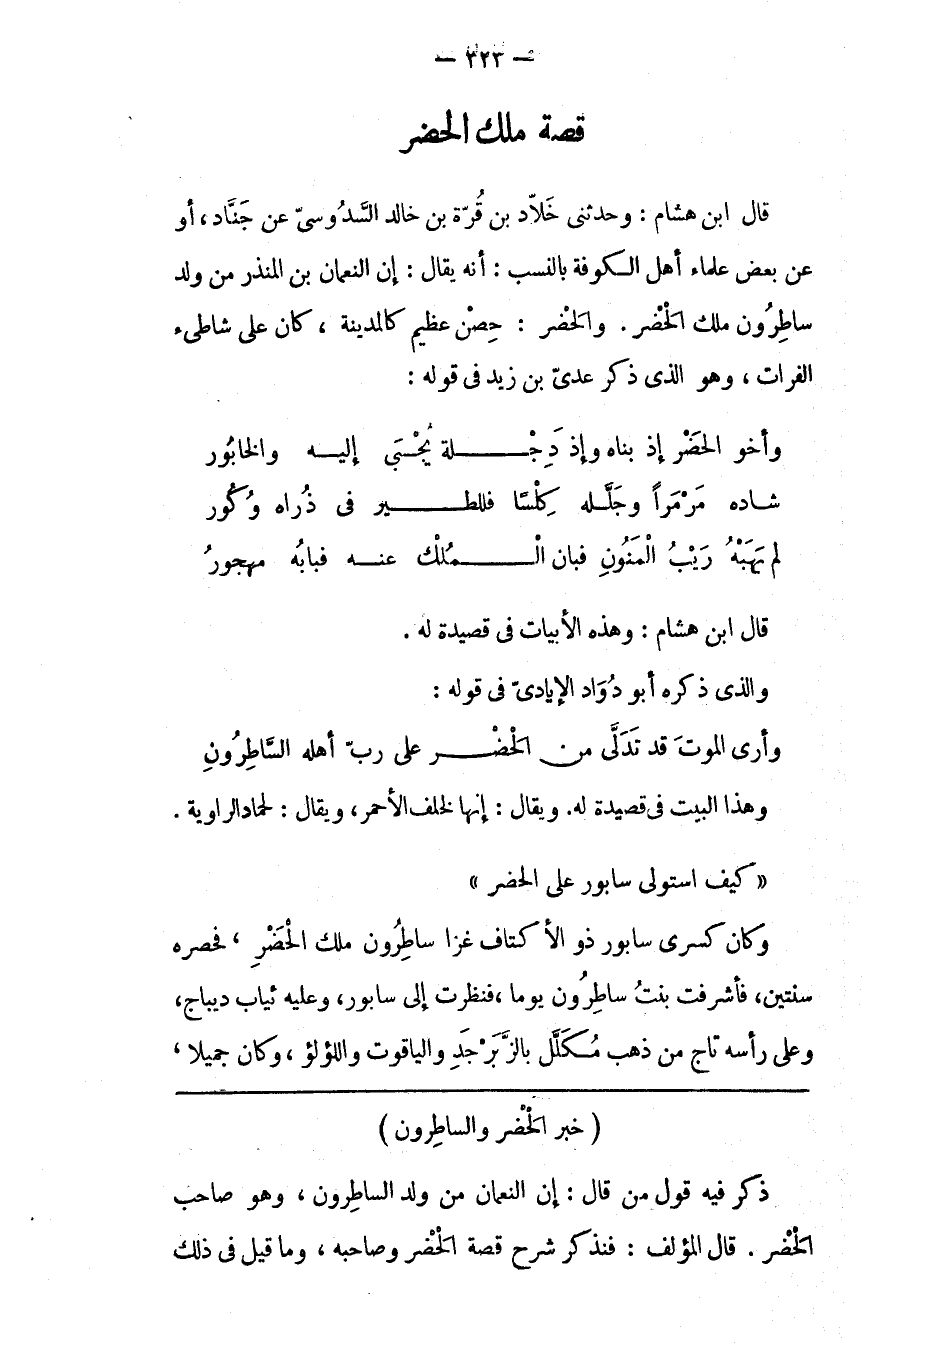 — ٣٢٣ —
قصة ملك الحضر
قال ابن هشام : وحدثنى خَلاّد بن قُرّة بن خالد السَّدُوسىّ عن جَنَّاد ، أو
عن بعض علماء أهل الكوفة بالنسب : أنه يقال : إن النعمان بن المنذر من ولد
ساطِرُون ملك الحْضر . والحْضر : حِصْن عظيم كالمدينة ، كان على شاطىء
الفرات ، وهو الذى ذكر عدىّ بن زيد فى قوله :
وأخو الحَضْر إذ بناه وإذ دَجْـــــلة يُجْـبَى إليـــه والخابُور
شـاده مَرْمَراً وجَلَّـله كِلْسًا فللطـــــير فى ذُراه وُكُور
لم يَهَبْهُ رَيْبُ الْمَنُونِ فبان الْـــــمُلْك عنـــه فبابُه مهجورُ
قال ابن هشام : وهذه الأبيات فى قصيدة له .
والذى ذكره أبو دُوَاد الإيادىّ فى قوله :
وأرى الموتَ قد تَدَلَّى من الحْضْـــــر على ربّ أهله السَّاطِرُونِ
وهذا البيت فى قصيدة له. ويقال : إنها لخلف الأحمر ، ويقال : لحماد الراوية .
« كيف استولى سابور على الحضر »
وكان كسرى سابور ذو الأكتاف غزا ساطِرُون ملك الْحَضْرِ ، فحصره
سنتين، فأشرفت بنتُ ساطِرُون يوما ،فنظرت إلى سابور، وعليه ثياب ديباج،
وعلى رأسه تاج من ذهب مُكَلَّل بالزَّبَرْجَدِ والياقوت واللؤلؤ ، وكان جميلا ،
( خبر الحْضر والساطِرون )
ذكر فيه قول من قال : إن النعمان من ولد الساطِرون ، وهو صاحب
الحْضر . قال المؤلف : فنذكر شرح قصة الحْضر وصاحبه ، وما قيل فى ذلك